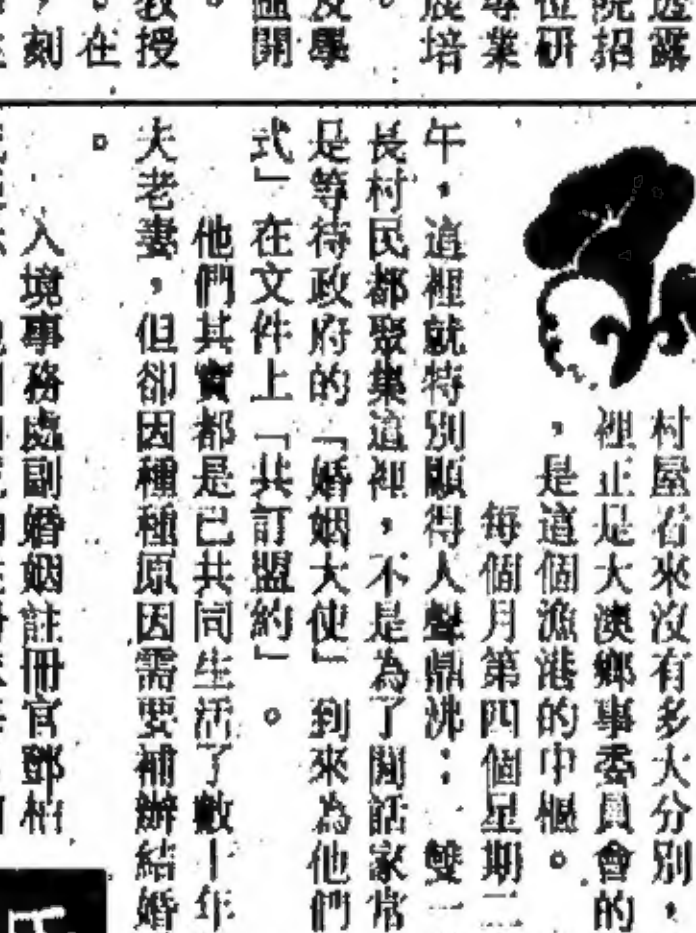 透露
院招
位研
專業
展培
及學
開
教授
。在
，刻
村屋看來沒有多大分別，
裡正是大澳鄉事委員會的
，是這個漁港的中樞。
每個月第四個星期二
午，這裡就特別顯得人聲鼎沸：雙一
長村民都聚集這裡，不是為了閒話家常
是等待政府的「婚姻大使」到來為他們
式」在文件上「共訂盟約」。
他們其實都是已共同生活了數十年
夫老妻，但卻因種種原因需要補辦結婚
。
入境事務處副婚姻註冊官鄧柏